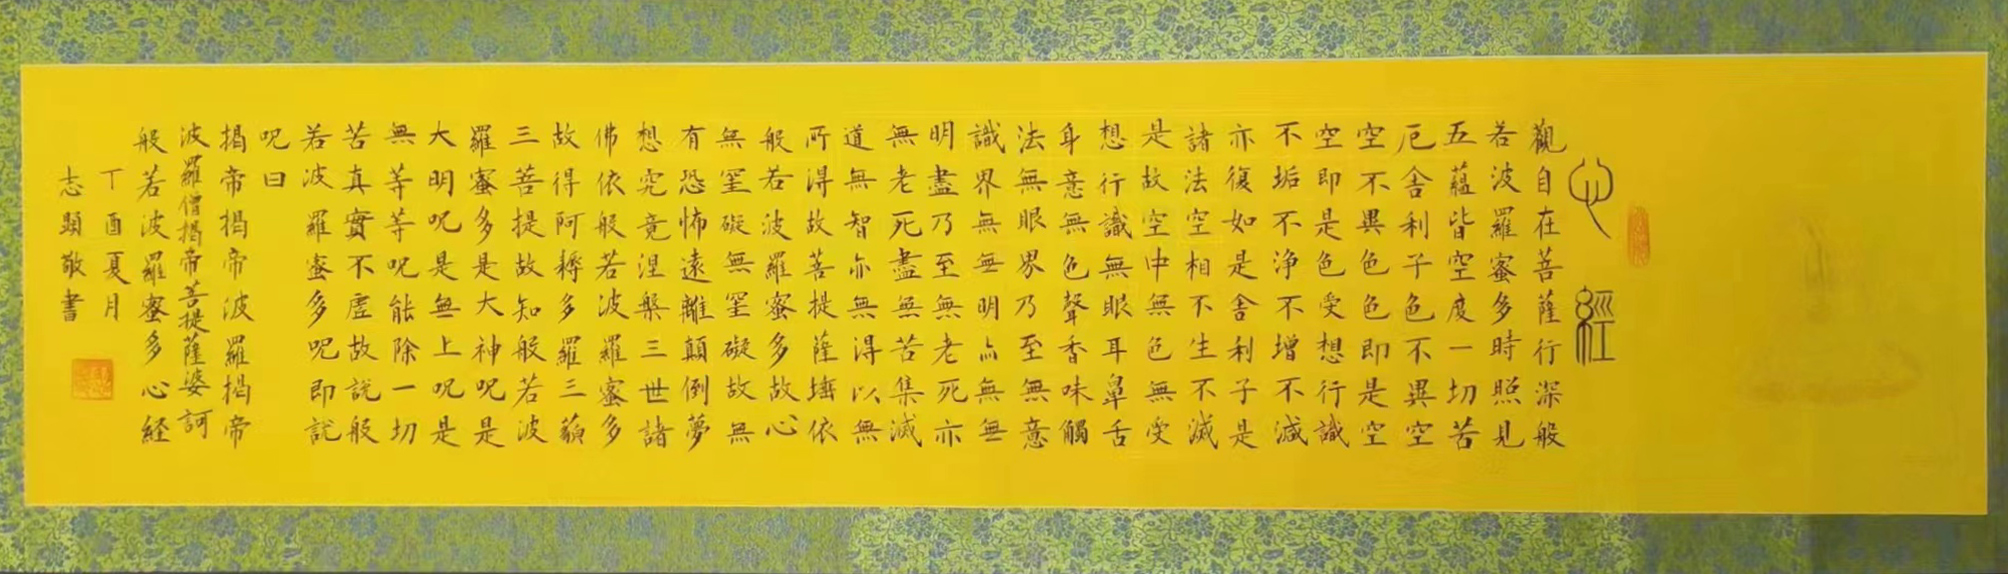 心經
觀自在菩薩行深般
若波羅蜜多時照見
五蘊皆空度一切苦
厄舍利子色不異空
空不異色色即是空
空即是色受想行識
不垢不浄不增不減
亦復如是舍利子是
諸法空相不生不滅
是故空中無色無受
想行識無眼耳鼻舌
身意無色聲香味觸
法無眼界乃至無意
識界無無明亦無無
明盡乃至無老死亦
無老死盡無苦集滅
道無智亦無得以無
所得故菩提薩埵依
般若波羅蜜多故心
無罣礙無罣礙故無
有恐怖遠離顛倒夢
想究竟涅槃三世諸
佛依般若波羅蜜多
故得阿耨多羅三藐
三菩提故知般若波
羅蜜多是大神呪是
大明呪是無上呪是
無等等呪能除一切
苦真實不虛故說般
若波羅蜜多呪即說
呪曰
揭帝揭帝波羅揭帝
波羅僧揭帝菩提薩婆訶
般若波羅蜜多心経
丁酉夏月
志顕敬書